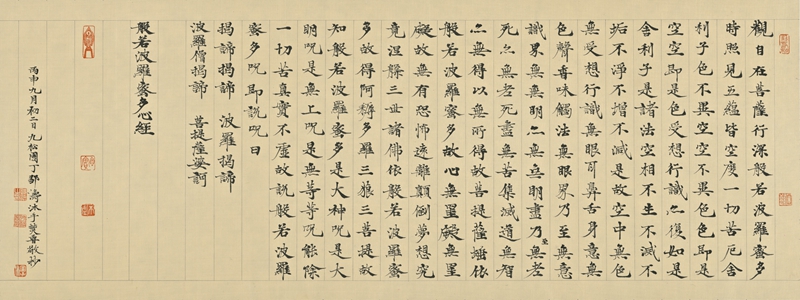 觀自在菩薩行深般若波羅蜜多
時照見五蘊皆空度一切苦厄舍
利子色不異空空不異色色即是
空空即是色受想行識亦復如是
舍利子是諸法空相不生不滅不
垢不淨不增不減是故空中無色
無受想行識無眼耳鼻舌身意無
色聲香味觸法無眼界乃至無意
識界無無明亦無無明盡乃至無老
死亦無老死盡無苦集滅道無智
亦無得以無所得故菩提薩埵依
般若波羅蜜多故心無罣礙無罣
礙故無有恐怖遠離顛倒夢想究
竟涅槃三世諸佛依般若波羅蜜
多故得阿耨多羅三藐三菩提故
知般若波羅蜜多是大神咒是大
明咒是無上咒是無等等咒能除
一切苦真實不虛故說般若波羅
蜜多咒即說咒曰
揭諦揭諦 波羅揭諦
波羅僧揭諦 菩提薩婆訶
般若波羅蜜多心經
丙申九月初二日九松園丁鄧濤沐手焚香敬抄